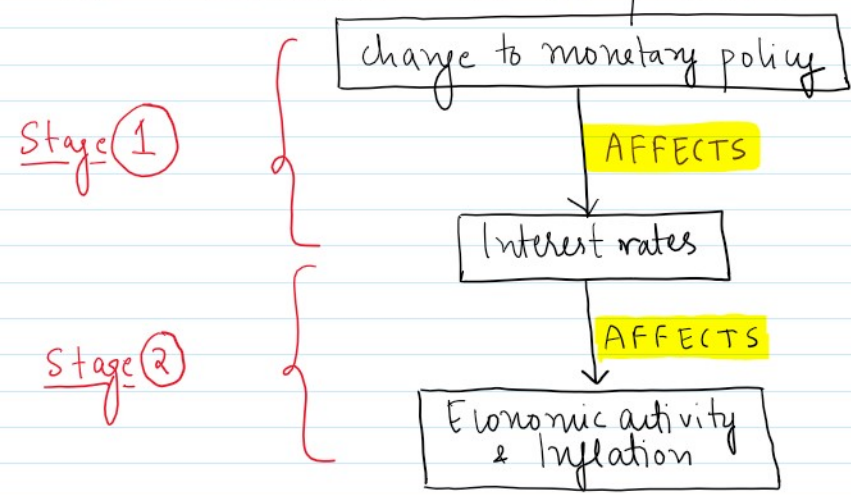 change to monetary policy
Stage 1
AFFECTS
Interest rates
Stage 2
AFFECTS
Economic activity
& Inflation